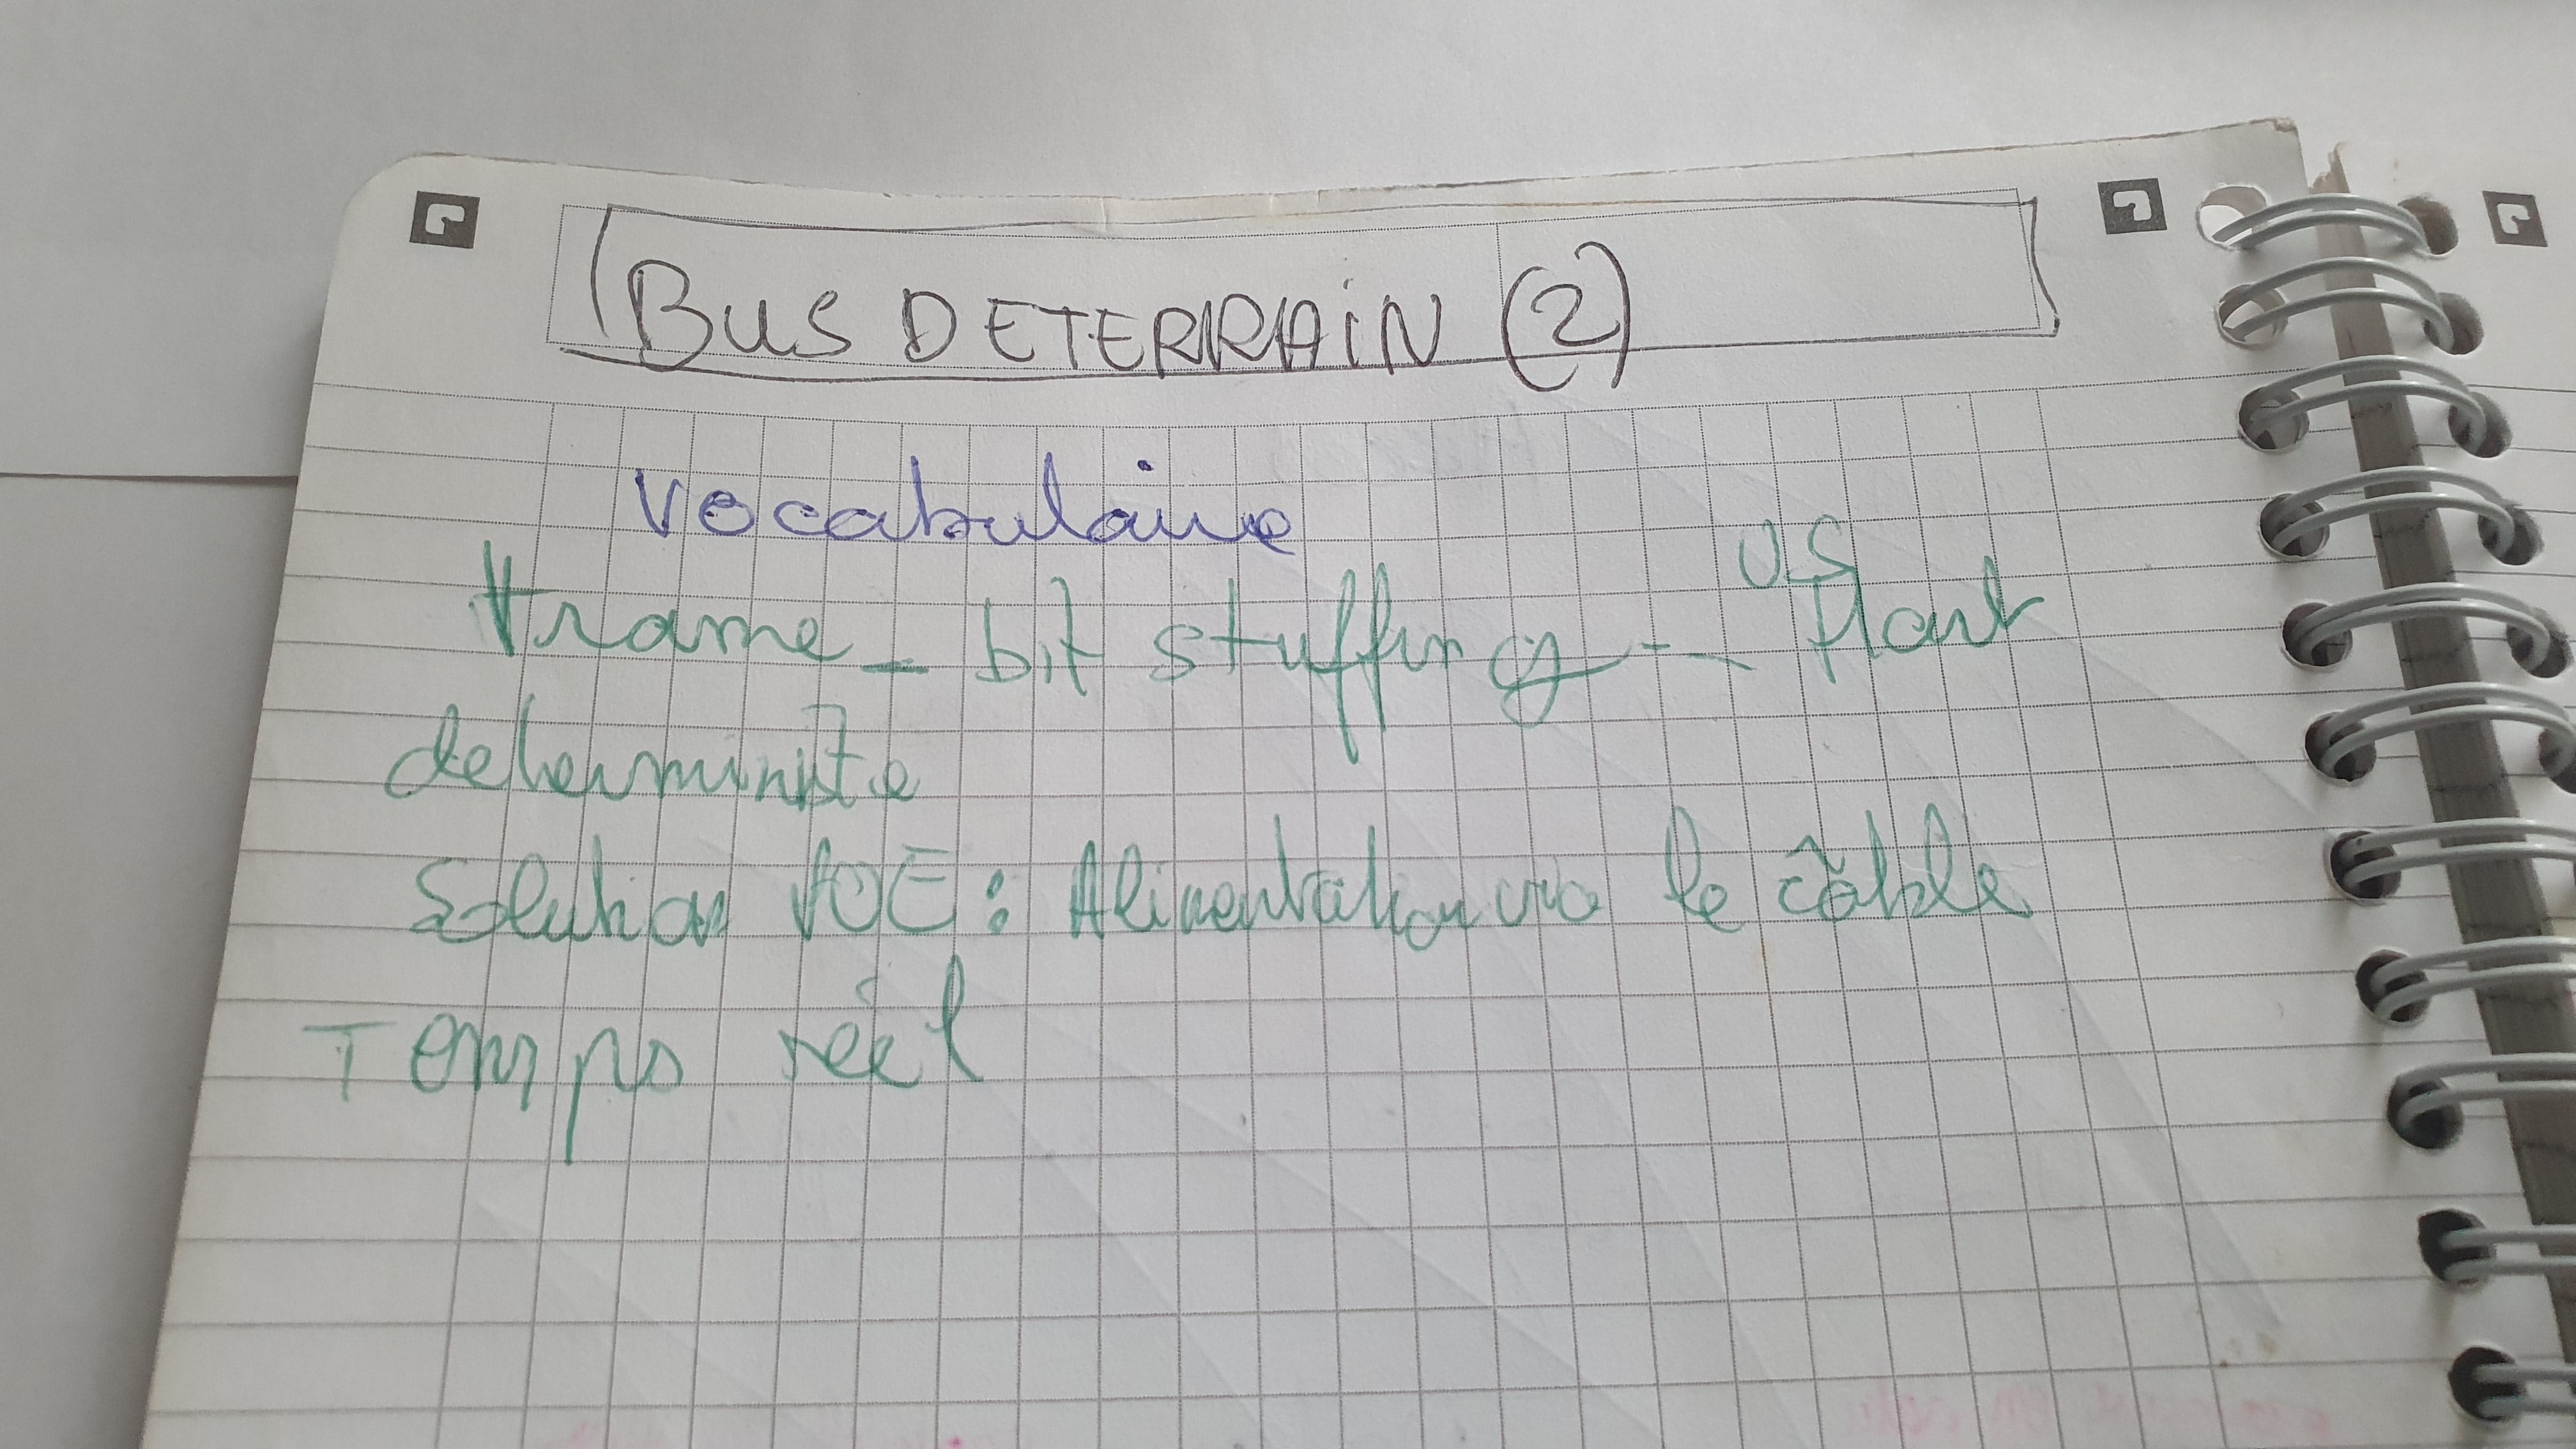 BUS DE TERRAIN (2)
Vocabulaire
US
trame - bit stuffing -
deterministe
Solution POE : Alimentation via le câble
Temps réel